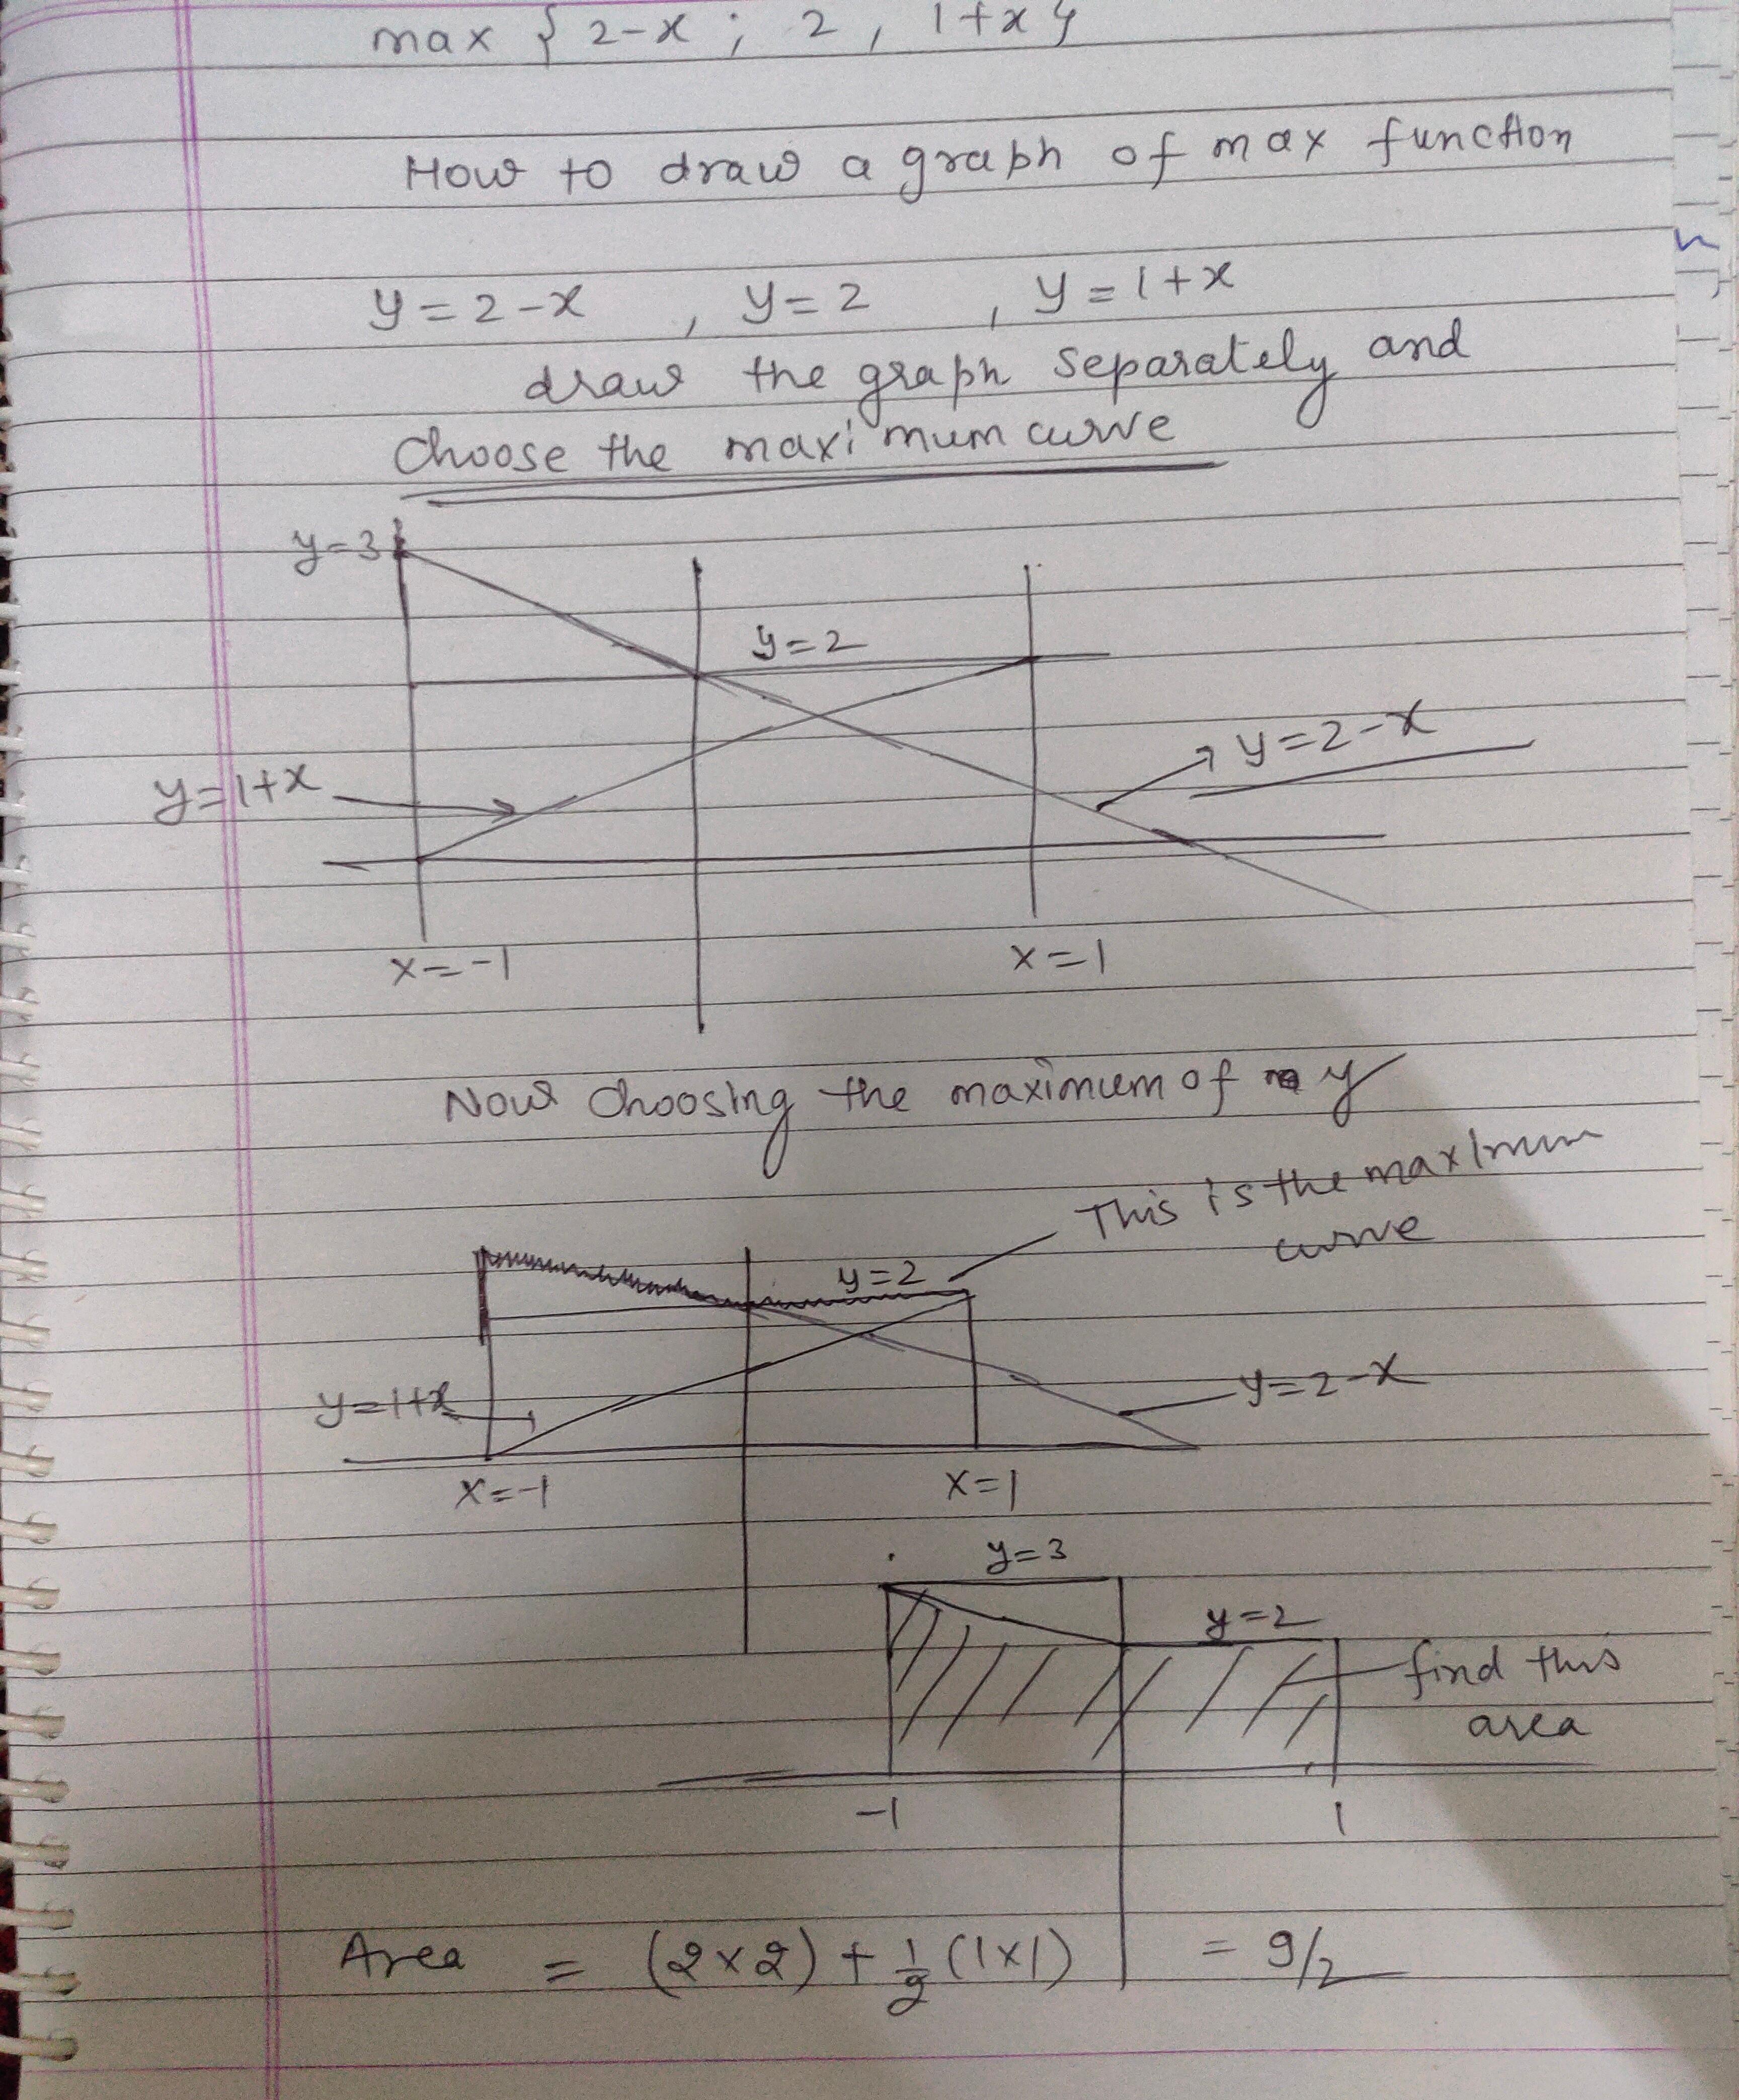 max { 2-x ; 2 , 1+x }
How to draw a graph of max function
y=2-x , y=2 , y=1+x
draw the graph separately and
Choose the maximum curve
y=3
y=2
y=2-x
y=1+x
x=-1
x=1
Now choosing the maximum of y
This is the maximum
curve
y=2
y=2-x
y=1+x
x=-1
x=1
y=3
y=2
find this
area
-1
1
Area = (2×2) + 1/2 (1×1) = 9/2